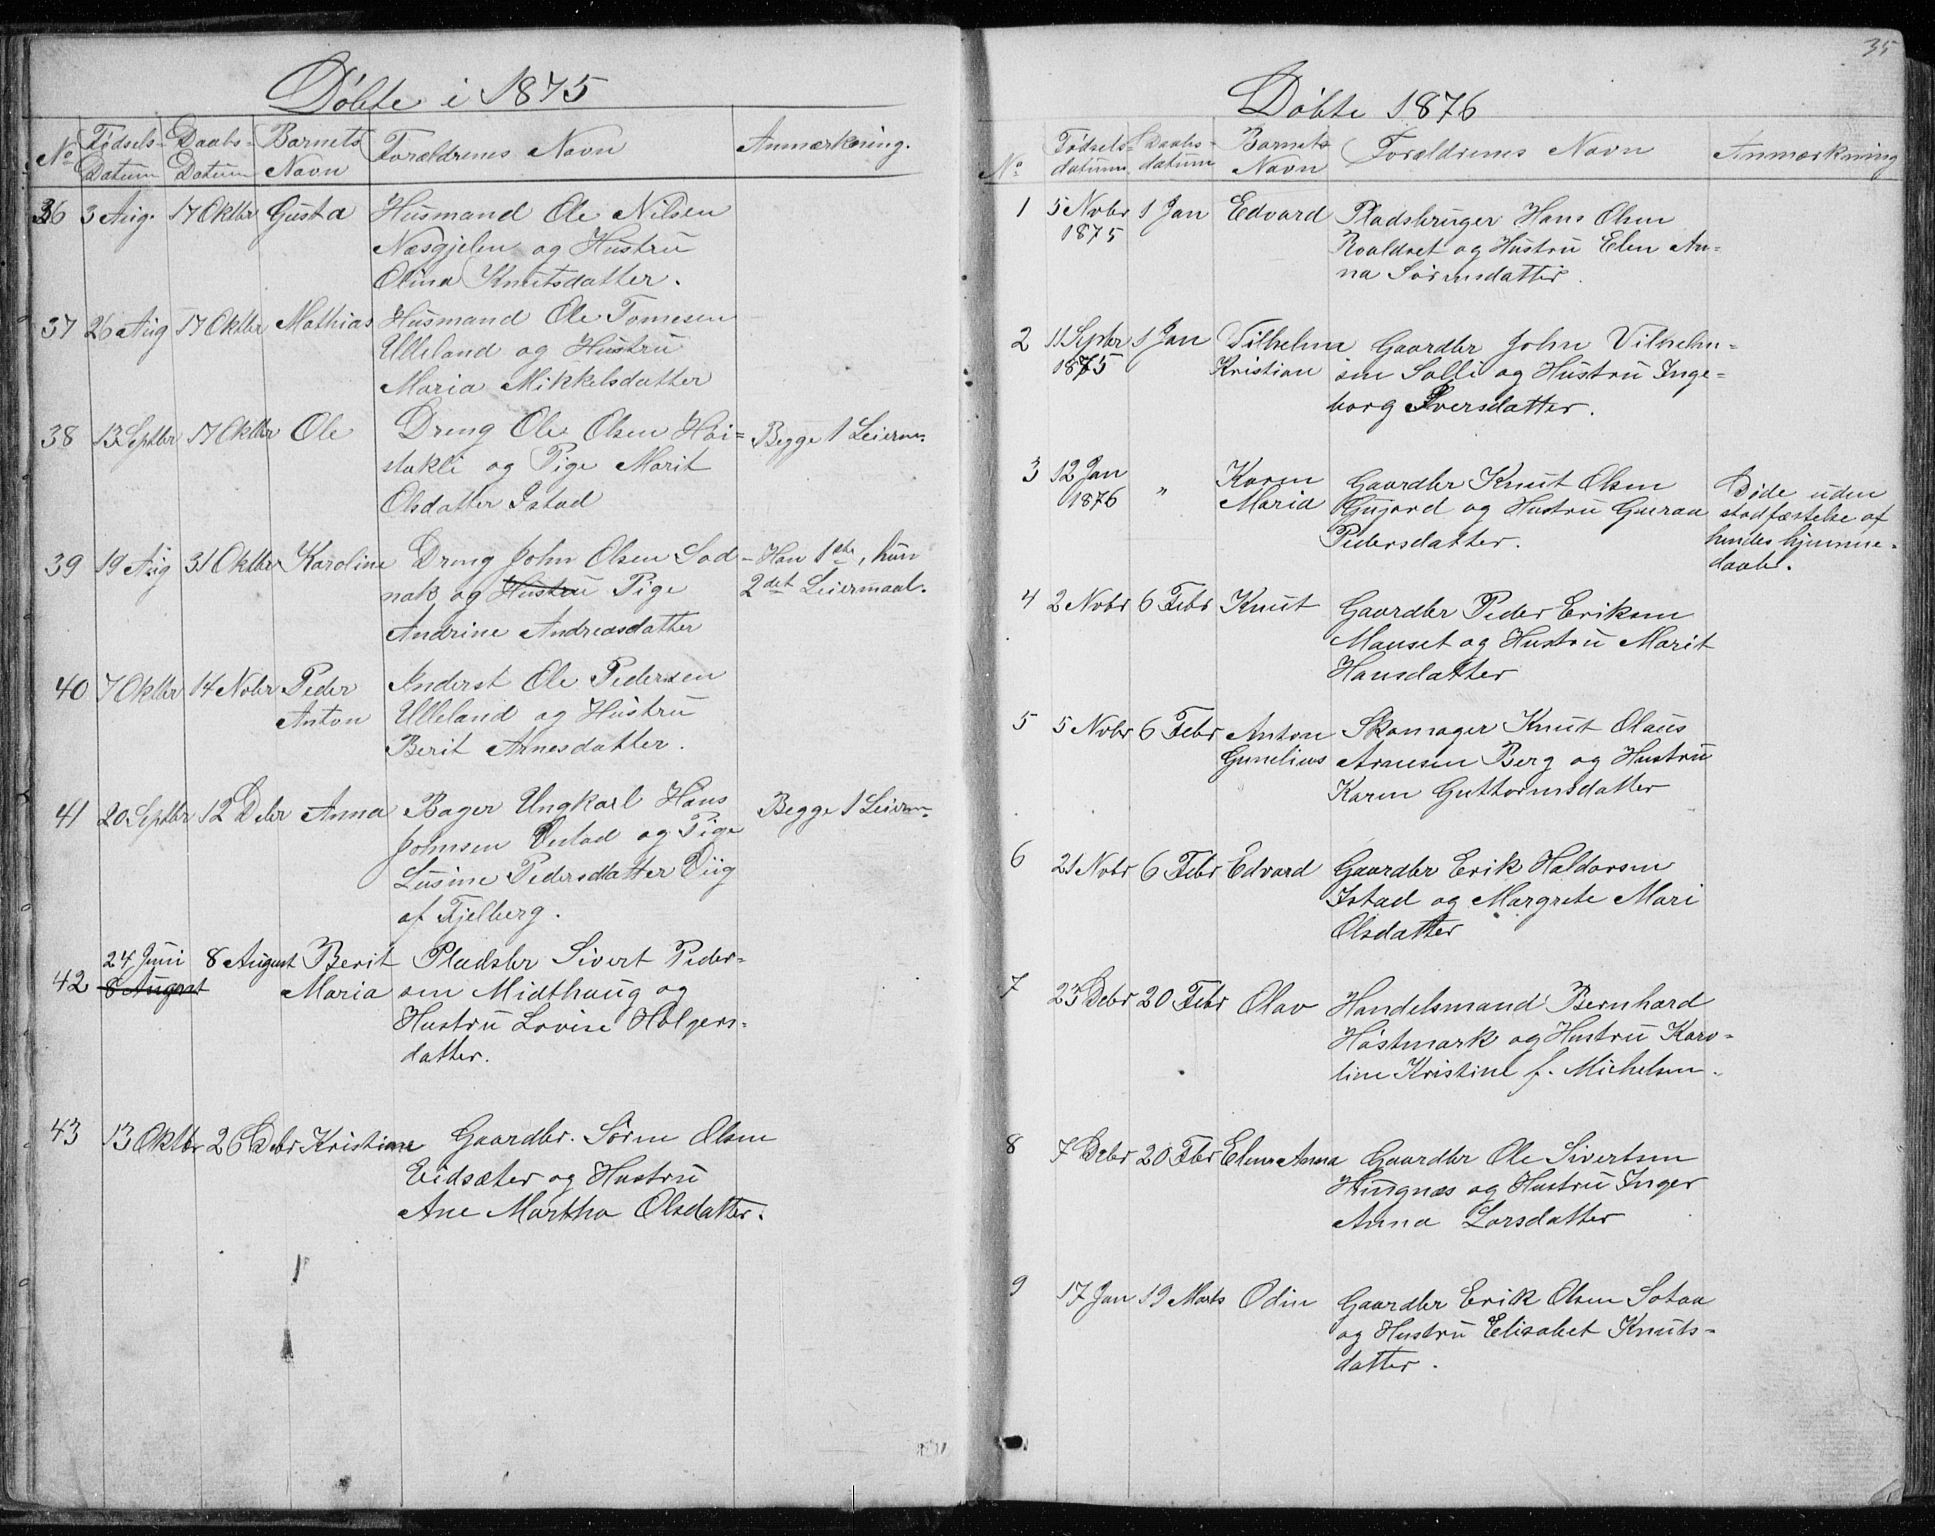 Døbte i 1875
No Fødsels- Datum Daabs- Datum Barnets Navn Forældrenes Navn Anmærkning.
36 3 Aug. 17 Oktbr Gusta Husmand Ole Nilsen
Næsgjelen og Hustru
Olina Knutsdatter.
37 26 Aug 17 Oktbr Mathias Husmand Ole Tomesen
Ulleland og Hustru
Maria Mikkelsdatter
38 13 Septbr 17 Oktbr Ole Dreng Ole Olsen Hoi= Begge 1 Leierm.
stakli og Pige Marit
Olsdatter Istad
39 19 Aug 31 Oktbr Karoline Dreng John Olsen Sod- Han 1ste, hun
nak og Hustru Pige 2det Leiermaal.
Andrine Andreasdatter
40 7 Oktbr 14 Nobr Peder Inderst Ole Pedersen
Anton Ulleland og Hustru
Berit Arnesdatter.
41 20 Septbr 12 Debr Anna Bager Ungkarl Hans Begge 1 Leierm.
Johnsen og Pige
Lusine Pedersdatter
af Fjelberg.
24 Juni 8 August Berit Pladsbr Sivert Peder-
42 8 August Maria sen Midthaug og
Hustru Lovise Holgers-
datter.
43 13 Oktbr 26 Debr Kristiane Gaardbr. Søren Olsen
Eidsæter og Hustru
Ane Martha Olsdatter.
35
Døbte 1876
No Fødsels- datum. Daabs- datum Barnets Navn Forældrenes Navn Anmærkning
1 5 Nvbr 1 Jan Edvard Pladsbruger Hans Olsen
1875 Roaldset og Hustru Elen An-
na Sørensdatter.
2 11 Septbr 1 Jan Vilhelma Gaardbr John Vilhelm-
1875 Kristian sen Solli og Hustru Inge-
borg Iversdatter.
3 12 Jan " Karen Gaardbr Knut Olsen Døde uden
1876 Maria Gujord og Hustru Guraa stadfæstelse af
Pedersdatter. hendes hjemme-
daab.
4 2 Nvbr 6 Febr Knut Gaardbr Peder Eriksen
Mauset og Hustru Marit
Hansdatter
5 5 Nvbr 6 Febr Anton Skomager Knut Olaus
Gunelius Arnesen Berg og Hustru
Karen Guttormsdatter
6 21 Nvbr 6 Febr Edvard Gaardbr Erik Haldorsen
Istad og Margrete Mari
Olsdatter
7 23 Debr 20 Febr Olav Handelsmand Bernhard
Høstmark og Hustru Karo-
line Kristine f. Michelsen.
8 7 Debr 20 Febr Elen Anna Gaardbr Ole Sivertsen
Hugnæs og Hustru Inger
Anna Larsdatter
9 17 Jan 19 Marts Odin Gaardbr Erik Olsen Sotaa
og Hustru Elisabet Knuts-
datter.